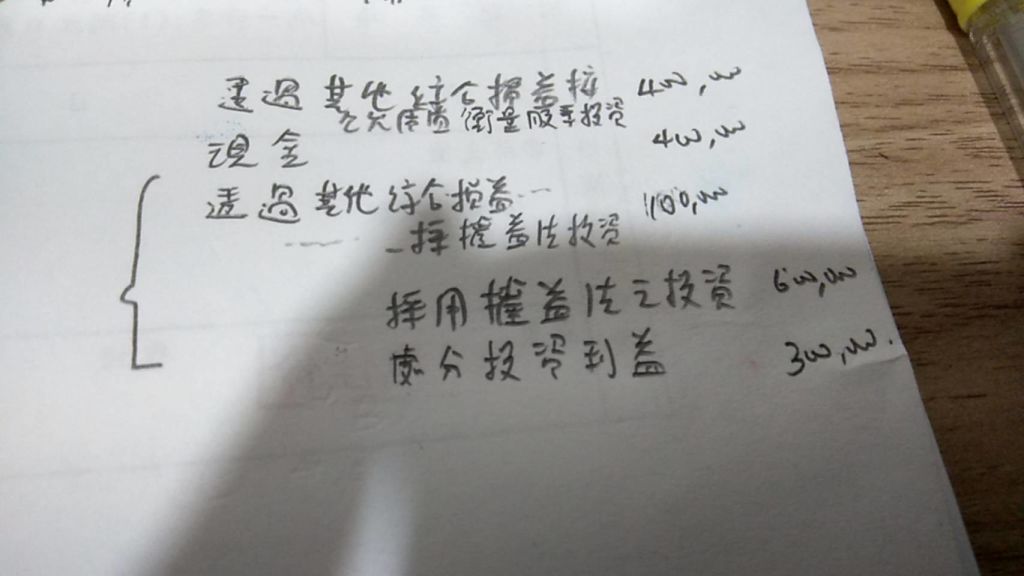 透過其他綜合損益按 400,000
之公允價值衡量股票投資
現金 400,000
透過其他綜合損益… 100,000
採權益法投資
採用權益法之投資 600,000
處分投資利益 300,000.